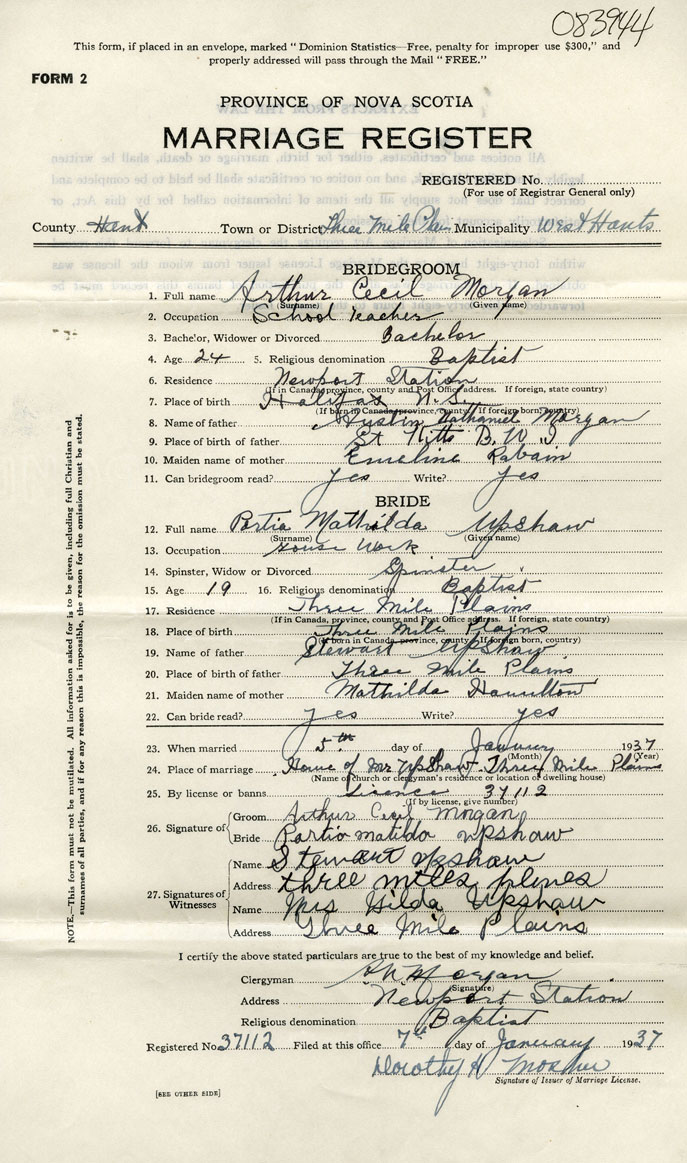 083944
This form, if placed in an envelope, marked "Dominion Statistics—Free, penalty for improper use $300," and
properly addressed will pass through the Mail "FREE."
FORM 2
PROVINCE OF NOVA SCOTIA
MARRIAGE REGISTER
REGISTERED No.
(For use of Registrar General only)
County Hants Town or District Three Mile Plain Municipality West Hants
BRIDEGROOM
1. Full name Arthur Cecil Morgan
(Surname) (Given name)
2. Occupation School Teacher
3. Bachelor, Widower or Divorced Bachelor
4. Age 24 5. Religious denomination Baptist
6. Residence Newport Station
(If in Canada, province, county and Post Office address. If foreign, state country)
7. Place of birth Halifax N.S.
(If born in Canada, province, county. If foreign born, country)
8. Name of father Austin Nathaniel Morgan
9. Place of birth of father St Kitts B.W.I
10. Maiden name of mother Emeline Rabain
11. Can bridegroom read? yes Write? yes
BRIDE
12. Full name Portia Mathilda Upshaw
(Surname) (Given name)
13. Occupation House Work
14. Spinster, Widow or Divorced Spinster
15. Age 19 16. Religious denomination Baptist
17. Residence Three Mile Plains
(If in Canada, province, county and Post Office address. If foreign, state country)
18. Place of birth Three Mile Plains
(If born in Canada, province, county. If foreign born, country)
19. Name of father Stewart Upshaw
20. Place of birth of father Three Mile Plains
21. Maiden name of mother Mathilda Hamilton
22. Can bride read? yes Write? yes
23. When married 5th day of January 1937
(Month) (Year)
24. Place of marriage House of Mr Upshaw Three Mile Plains
(Name of church or clergyman's residence or location of dwelling house)
25. By license or banns licence 37112
(If by license, give number)
26. Signature of Groom Arthur Cecil Morgan
Bride Portia matilda upshaw
27. Signatures of Witnesses Name Stewart upshaw
Address three miles plines
Name Mrs Hilda Upshaw
Address Three Mile Plains
I certify the above stated particulars are true to the best of my knowledge and belief.
Clergyman Morgan
(Signature)
Address Newport Station
Religious denomination Baptist
Registered No. 37112 Filed at this office 7th day of January 1937
Dorothy H Mosher
Signature of Issuer of Marriage License.
[SEE OTHER SIDE]
NOTE.—This form must not be mutilated. All information asked for is to be given, including full Christian and
surnames of all parties, and if for any reason this is impossible, the reason for the omission must be stated.